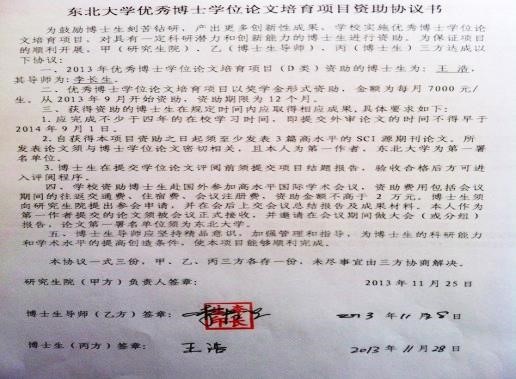 东北大学优秀博士学位论文培育项目资助协议书
为鼓励博士生刻苦钻研，产出更多创新性成果，学校实施优秀博士学位论
文培育项目，对具有一定科研潜力和创新能力的博士生进行资助。为保证项目
的顺利开展，甲（研究生院）、乙（博士生导师）、丙（博士生）三方达成以
下协议：
一、2013年优秀博士学位论文培育项目（D类）资助的博士生为：王 浩，
其导师为：李长生。
二、优秀博士学位论文培育项目以奖学金形式资助，金额为每月 7000 元/
生，从 2013 年 9 月开始资助，资助期限为 12 个月。
三、获得资助的博士生在规定时间内应取得相应成果。具体要求如下：
1.应完成不少于四年的在校学习时间，即提交外审论文的时间不得早于
2014 年 9 月 1 日。
2.自获得本项目资助之日起须至少发表 3 篇高水平的 SCI 源期刊论文。所
发表论文须与博士学位论文密切相关，且本人为第一作者，东北大学为第一署
名单位。
3.博士生在提交学位论文评阅前须提交项目结题报告，验收合格后方可进
入评阅程序。
四、学校资助博士生赴国外参加高水平国际学术会议，资助费用包括会议
期间的往返交通费、住宿费、会议注册费，资助金额不高于 2 万元。博士生须
向研究生院提出参会申请，并在会后上交会议总结报告及成果材料。本人作为
第一作者提交的论文须被会议正式接收，并邀请在会议期间做大会（或分组）
报告，论文第一署名单位须为东北大学。
五、博士生导师应坚持精品意识，加强管理和指导，为博士生的科研能力
和学术水平的提高创造条件，使本项目能够顺利完成。
本协议一式三份，甲、乙、丙三方各存一份，未尽事宜由三方协商解决。
研究生院（甲方）负责人签章： 2013 年 11 月 25 日
博士生导师（乙方）签章： 2013 年 11 月 28 日
博士生（丙方）签章： 王浩 2013 年 11 月 28 日